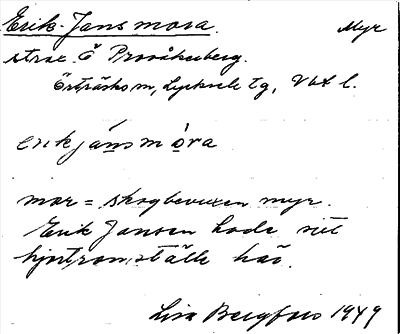 Erik-Jansmora. Myr
strax Ö Provåkersberg.
Örträsks sn, Lycksele tg, Vbt l.
erikjánsmóra
mor = skogbevuxen myr.
Erik Jansson hade sitt
hjortronställe här.
Lisa 1949